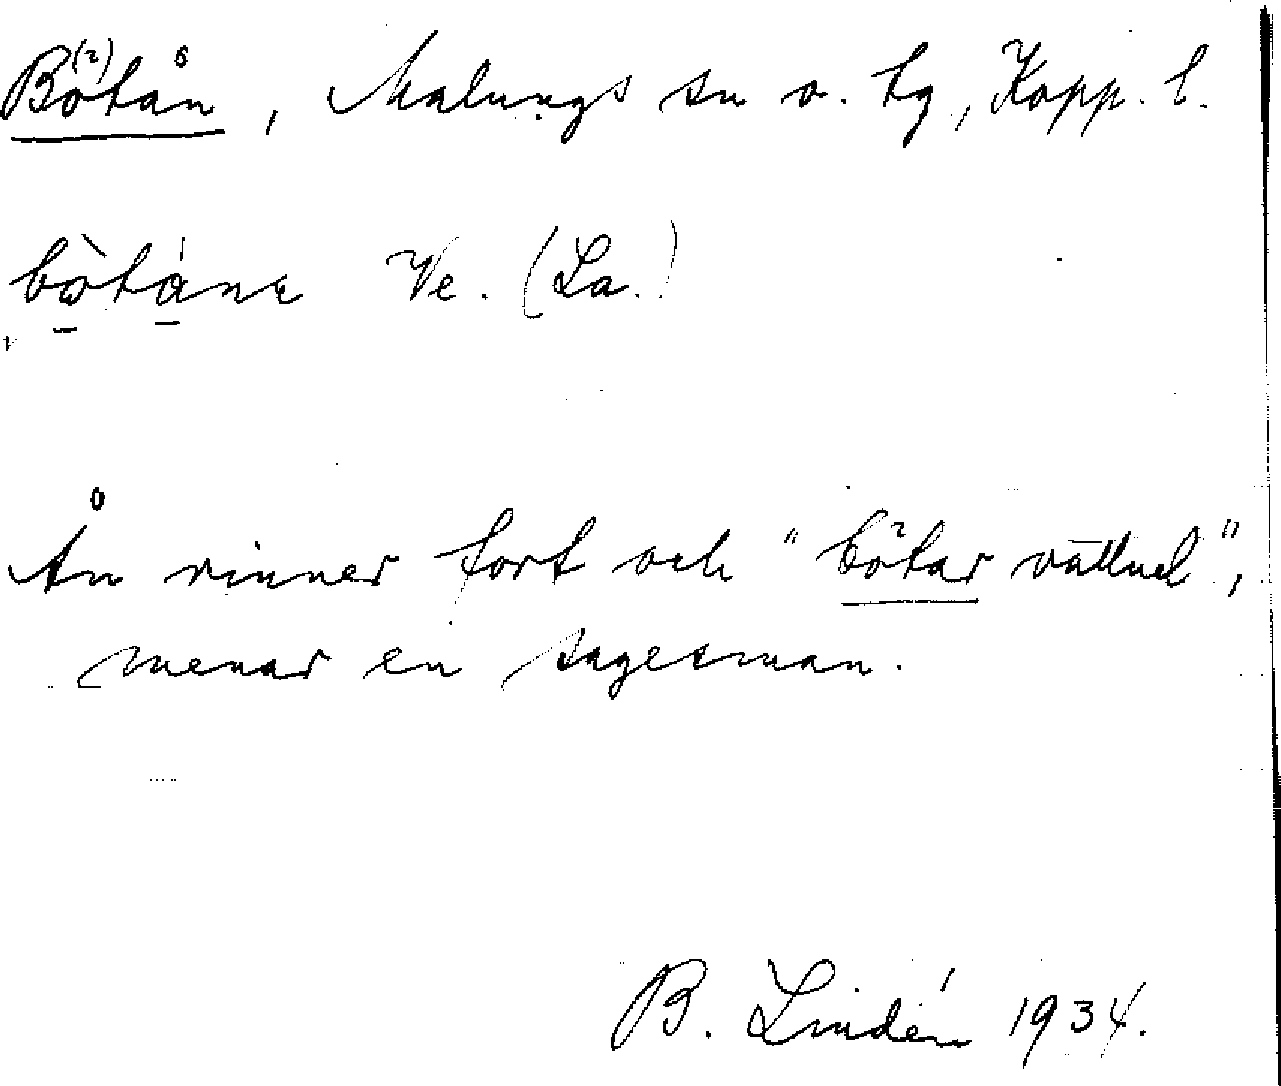 Bötån, Malungs sn o. tg, Kopp. l.
bòtáne Ve. (La.)
Ån rinner fort och "bötar vattnel",
menar en sagesman.
B. Lindén 1934.